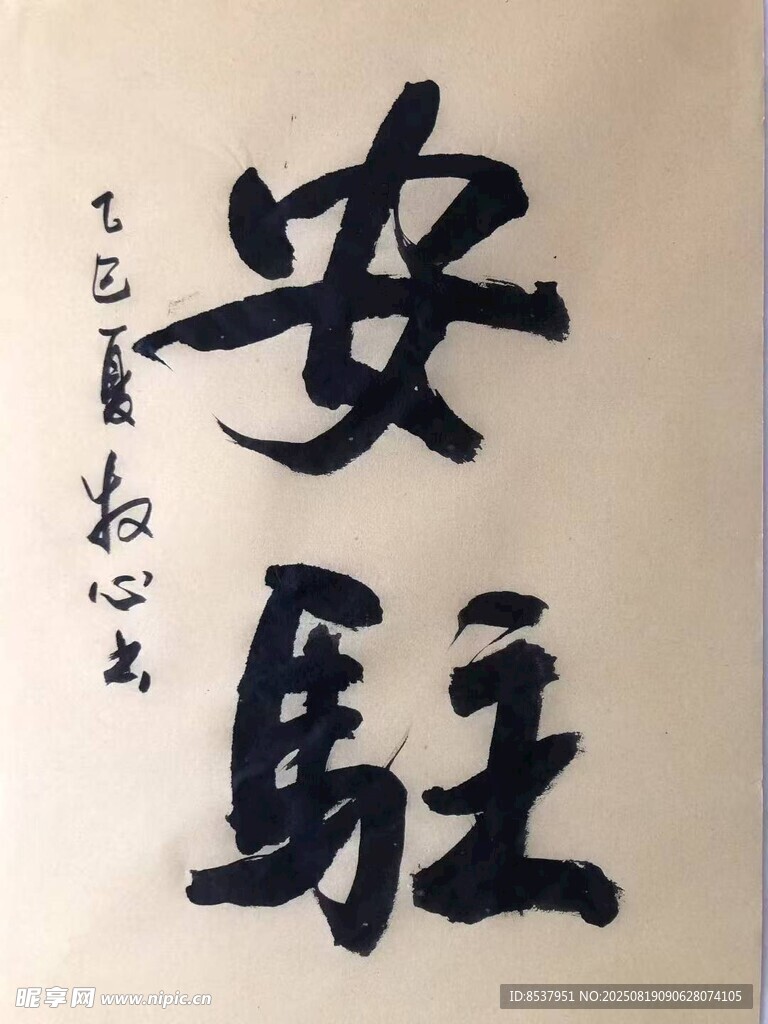 安駐
乙巳夏牧心书
昵享网 www.nipic.cn
ID:8537951 NO:20250819090628074105